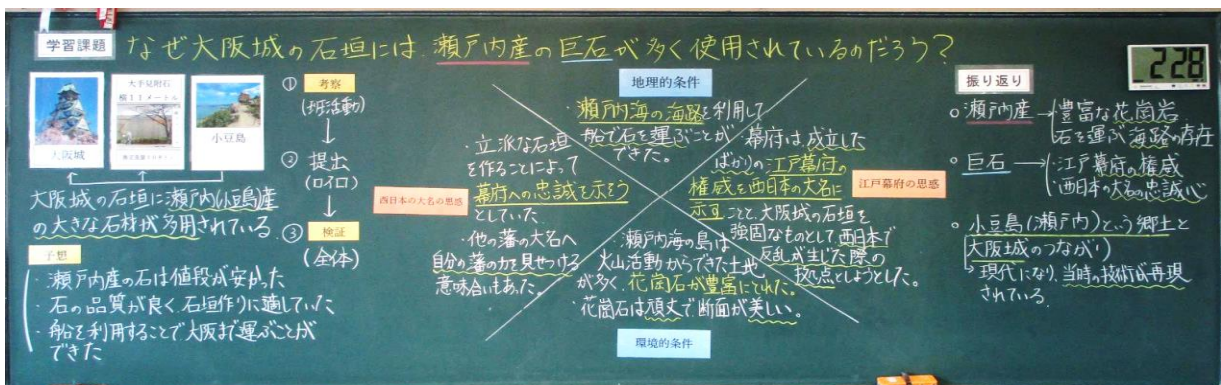 学習課題
なぜ大阪城の石垣には、瀬戸内産の巨石が多く使用されているのだろう?
228
大阪城
大手見附石
横11メートル
小豆島
大阪城の石垣に瀬戸内(小豆島)産
の大きな石材が多用されている。
予想
・瀬戸内産の石は値段が安かった
・石の品質が良く、石垣作りに適していた
・船を利用することで大阪まで運ぶことが
できた
① 考察
(班活動)
② 提出
(ロイロ)
③ 検証
(全体)
地理的条件
・瀬戸内海の海路を利用して
船で石を運ぶことが
できた。
西日本の大名の思惑
・立派な石垣
を作ることによって
幕府への忠誠を示そう
としていた。
・他の藩の大名へ
自分の藩の力を見せつける
意味合いもあった。
江戸幕府の思惑
・幕府は、成立した
ばかりの江戸幕府の
権威を西日本の大名に
示すことと、大阪城の石垣を
強固なものとして西日本で
反乱が生じた際の
拠点としようとした。
・瀬戸内海の島は
火山活動からできた土地
が多く、花崗石が豊富にとれた。
・花崗石は頑丈で断面が美しい。
環境的条件
振り返り
○瀬戸内産→豊富な花崗岩
石を運ぶ海路の存在
○巨石→・江戸幕府の権威
・西日本の大名の忠誠心
○小豆島(瀬戸内)という郷土と
大阪城のつながり
↳現代になり、当時の技術が再現
されている。